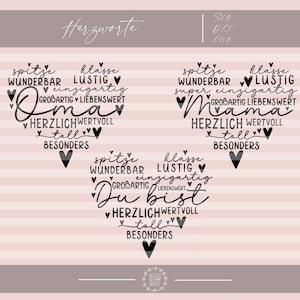 Herzworte
SVG
DXF
PNG
spitze klasse
WUNDERBAR LUSTIG
einzigartig
GROßARTIG LIEBENSWERT
Oma
HERZLICH WERTVOLL
toll
BESONDERS
spitze klasse
WUNDERBAR LUSTIG
super einzigartig
GROßARTIG LIEBENSWERT
Mama
HERZLICH WERTVOLL
toll
BESONDERS
spitze klasse
WUNDERBAR LUSTIG
einzigartig
GROßARTIG LIEBENSWERT
Du bist
HERZLICH WERTVOLL
toll
BESONDERS